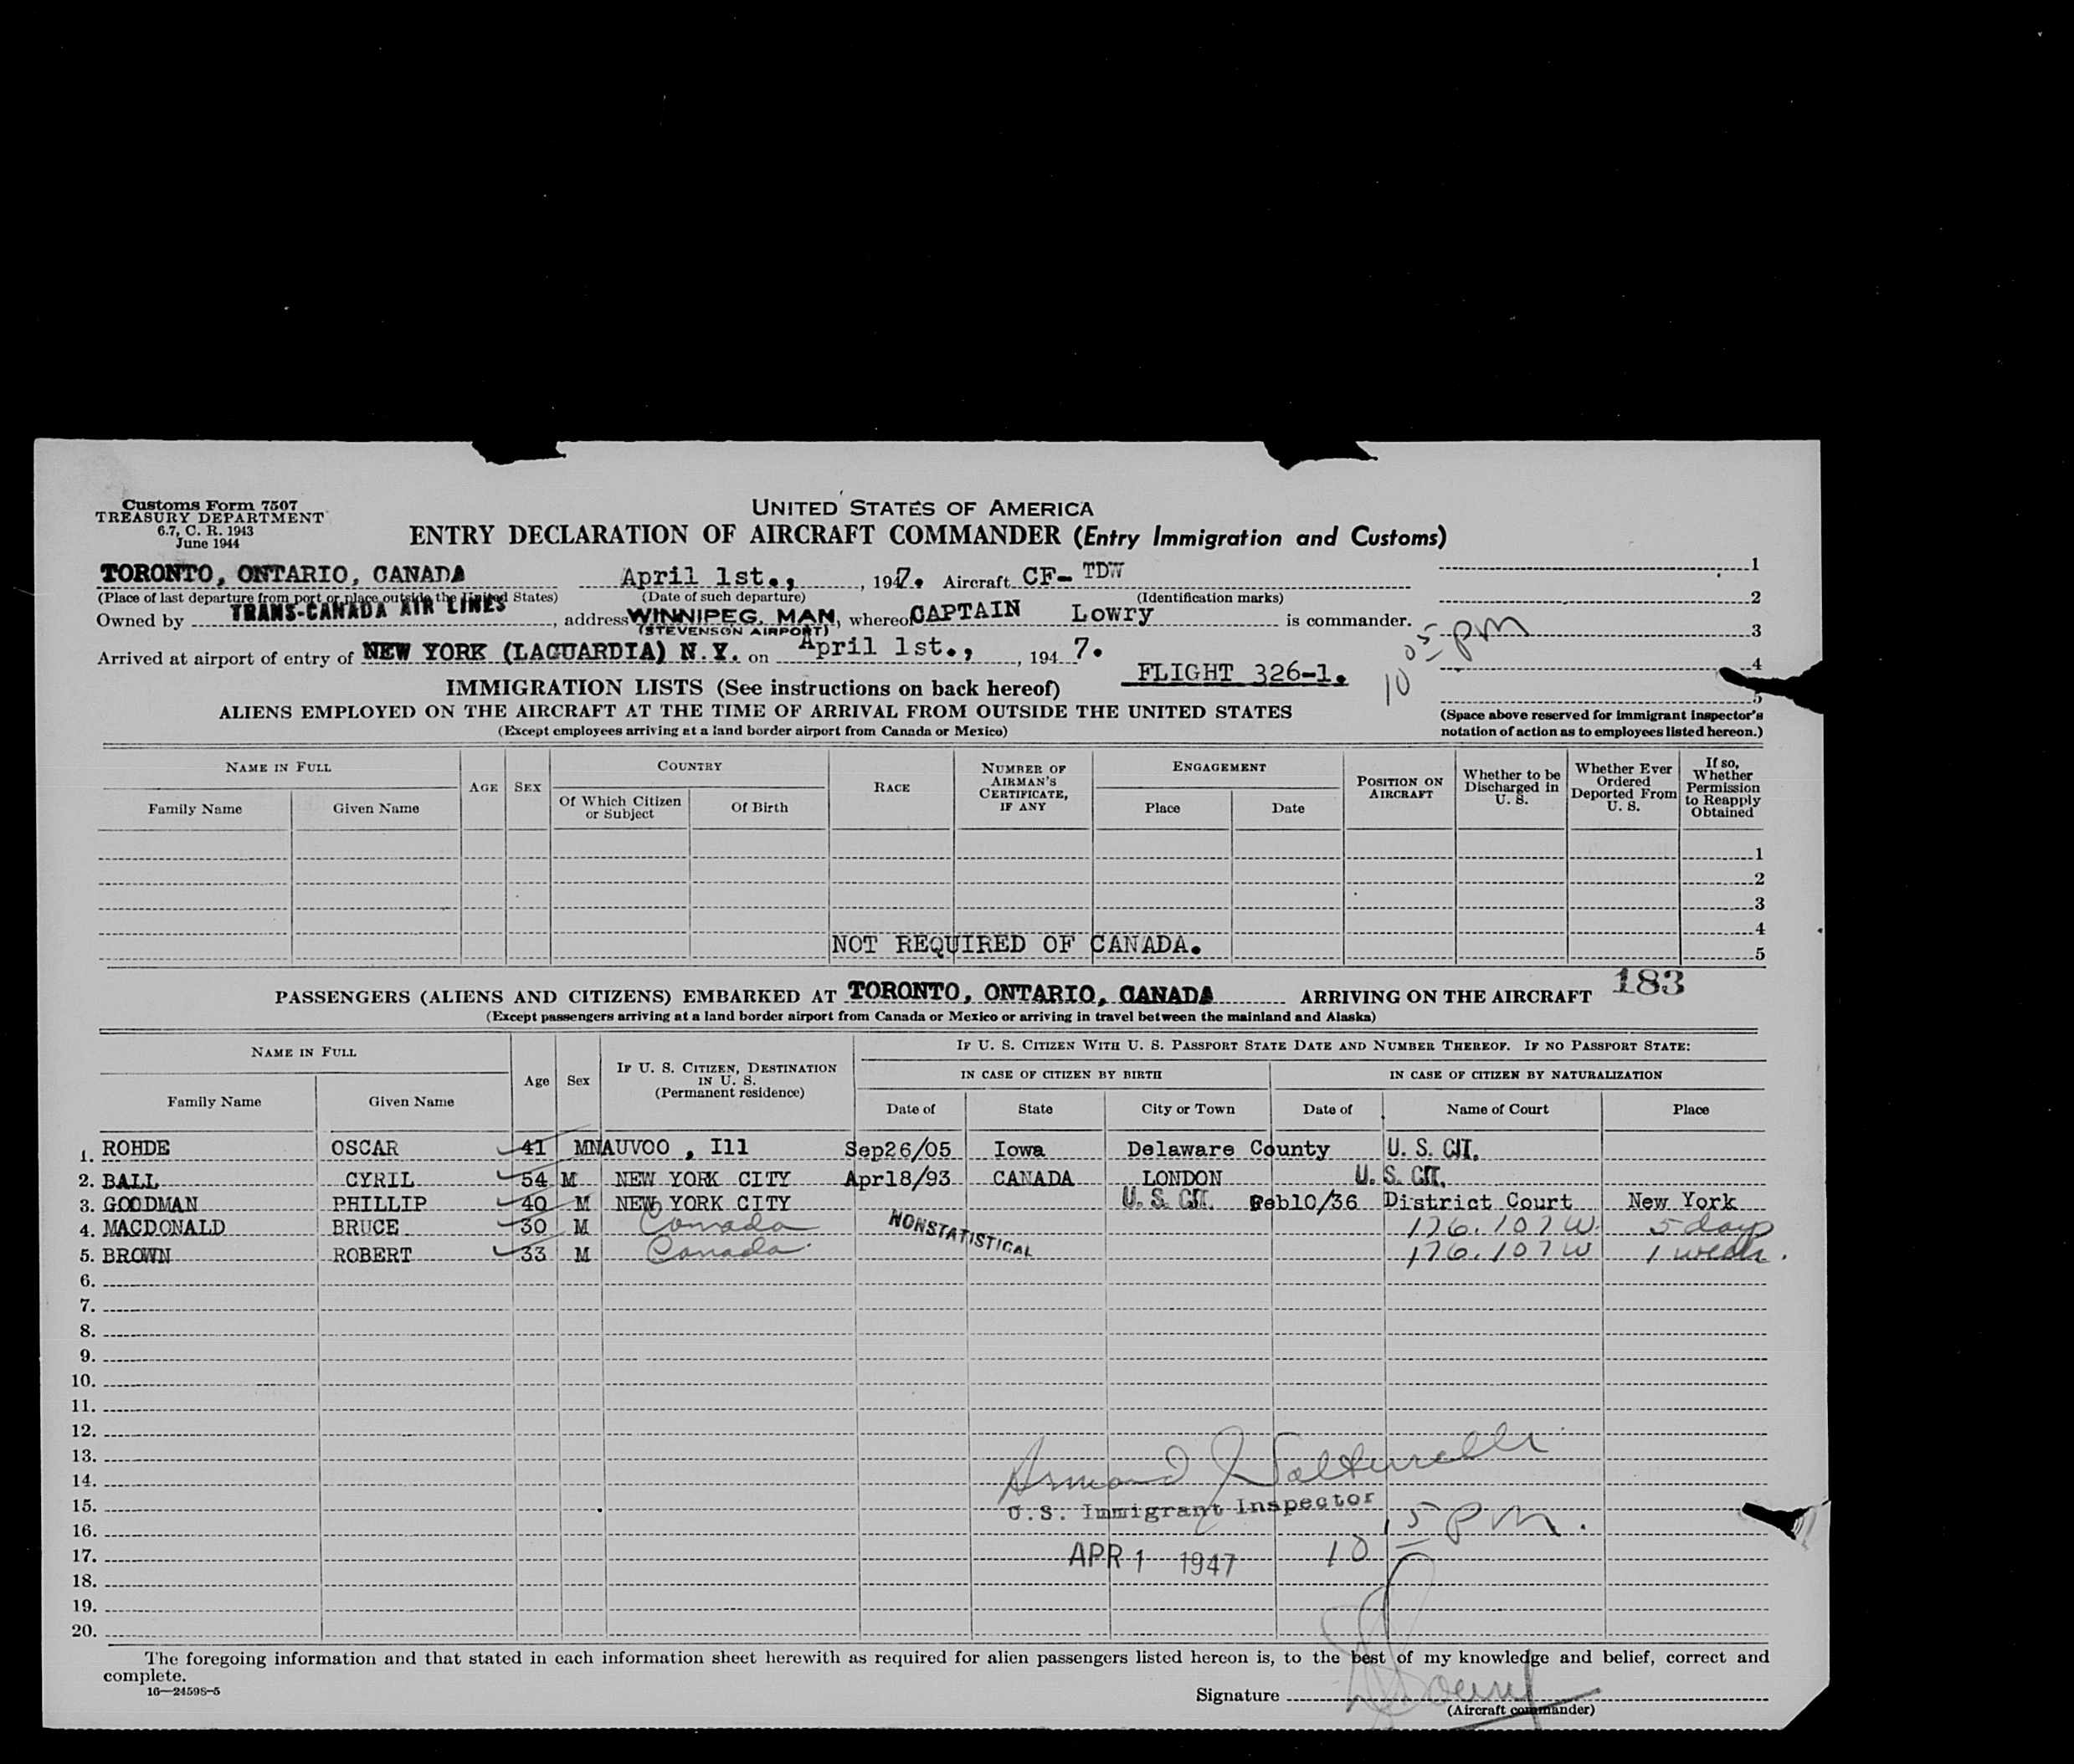 Customs Form 7507
TREASURY DEPARTMENT
6.7, C. R. 1943
June 1944
UNITED STATES OF AMERICA
ENTRY DECLARATION OF AIRCRAFT COMMANDER (Entry Immigration and Customs)
TORONTO, ONTARIO, CANADA April 1st., , 1947. Aircraft CF- TDW 1
(Place of last departure from port or place outside the United States) (Date of such departure) (Identification marks) 2
Owned by TRANS-CANADA AIR LINES, address WINNIPEG. MAN, whereof CAPTAIN Lowry is commander.
(STEVENSON AIRPORT) 10 05 pm 3
Arrived at airport of entry of NEW YORK (LAGUARDIA) N.Y. on April 1st., , 194 7. 4
FLIGHT 326-1. 5
IMMIGRATION LISTS (See instructions on back hereof)
ALIENS EMPLOYED ON THE AIRCRAFT AT THE TIME OF ARRIVAL FROM OUTSIDE THE UNITED STATES (Space above reserved for immigrant inspector's
(Except employees arriving at a land border airport from Canada or Mexico) notation of action as to employees listed hereon.)
NAME IN FULL AGE SEX COUNTRY RACE NUMBER OF AIRMAN'S CERTIFICATE, IF ANY ENGAGEMENT POSITION ON AIRCRAFT Whether to be Discharged in U. S. Whether Ever Ordered Deported From U. S. If so, Whether Permission to Reapply Obtained
Family Name Given Name Of Which Citizen or Subject Of Birth Place Date
1
2
3
4
NOT REQUIRED OF CANADA. 5
PASSENGERS (ALIENS AND CITIZENS) EMBARKED AT TORONTO, ONTARIO, CANADA ARRIVING ON THE AIRCRAFT 183
(Except passengers arriving at a land border airport from Canada or Mexico or arriving in travel between the mainland and Alaska)
NAME IN FULL Age Sex IF U. S. CITIZEN, DESTINATION IN U. S. (Permanent residence) IF U. S. CITIZEN WITH U. S. PASSPORT STATE DATE AND NUMBER THEREOF. IF NO PASSPORT STATE:
IN CASE OF CITIZEN BY BIRTH IN CASE OF CITIZEN BY NATURALIZATION
Family Name Given Name Date of State City or Town Date of Name of Court Place
1. ROHDE OSCAR 41 M NAUVOO , Ill Sep26/05 Iowa Delaware County U. S. CIT.
2. BALL CYRIL 54 M NEW YORK CITY Apr18/93 CANADA LONDON U. S. CIT.
3. GOODMAN PHILLIP 40 M NEW YORK CITY U. S. CIT. Feb10/36 District Court New York
4. MACDONALD BRUCE 30 M Canada NONSTATISTICAL 176.107 W. 5 days
5. BROWN ROBERT 33 M Canada 176.107 W 1 week.
6.
7.
8.
9.
10.
11.
12.
13.
14. Armand
15. U.S. Immigrant Inspector
16. 10 15 pm.
17. APR 1 1947
18.
19.
20.
The foregoing information and that stated in each information sheet herewith as required for alien passengers listed hereon is, to the best of my knowledge and belief, correct and
complete.
16—24598-5
Signature Lowry
(Aircraft commander)